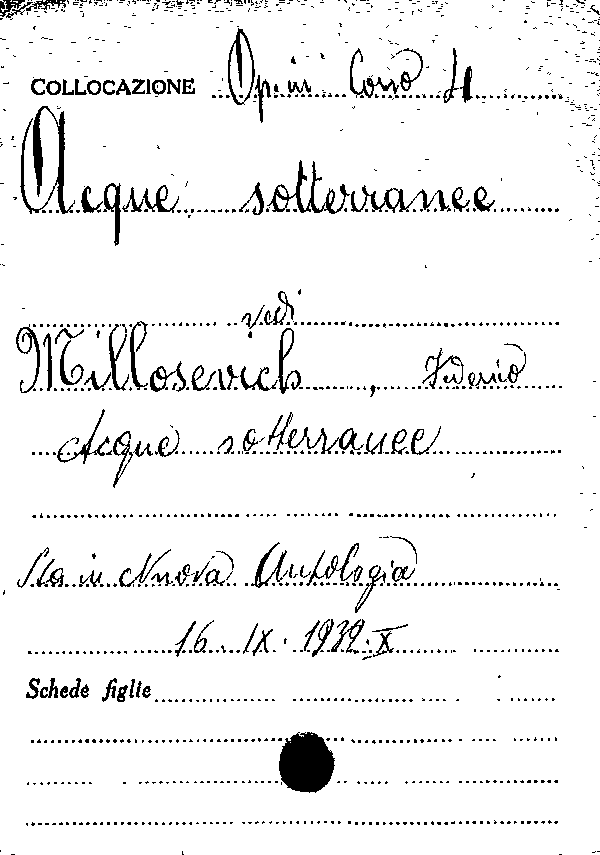 COLLOCAZIONE Op. in Cons 41
Acque sotterranee
vedi
Millosevich, Federico
Acque sotterranee
Sta in Nuova Antologia
16. IX. 1932. X
Schede figlie